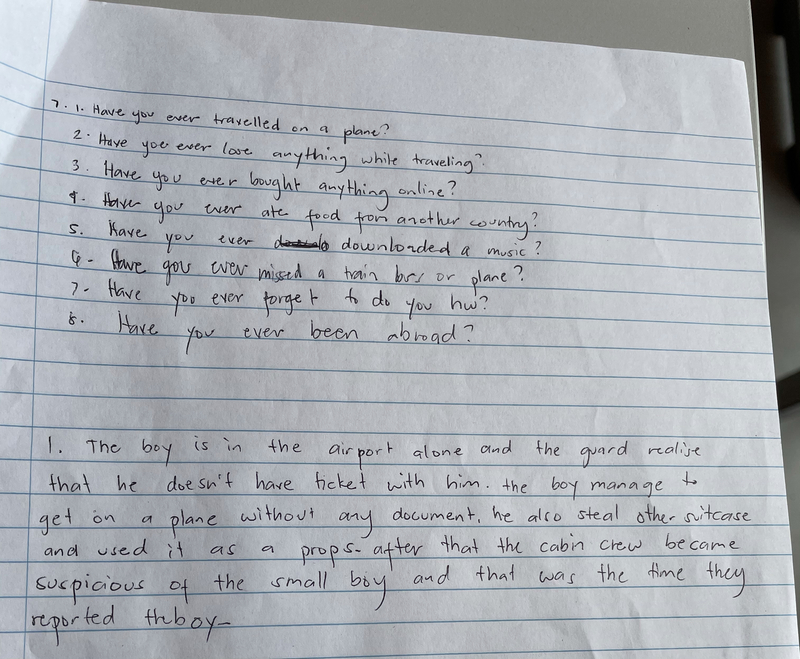 7. 1. Have you ever travelled on a plane?
2. Have you ever lose anything while traveling?
3. Have you ever bought anything online?
4. Have you ever ate food from another country?
5. Have you ever downloaded a music?
6. Have you ever missed a train bus or plane?
7. Have you ever forget to do you hw?
8. Have you ever been abroad?
1. The boy is in the airport alone and the guard realise
that he doesn't have ticket with him. the boy manage to
get on a plane without any document. he also steal other suitcase
and used it as a props. after that the cabin crew became
suspicious of the small boy and that was the time they
reported the boy.